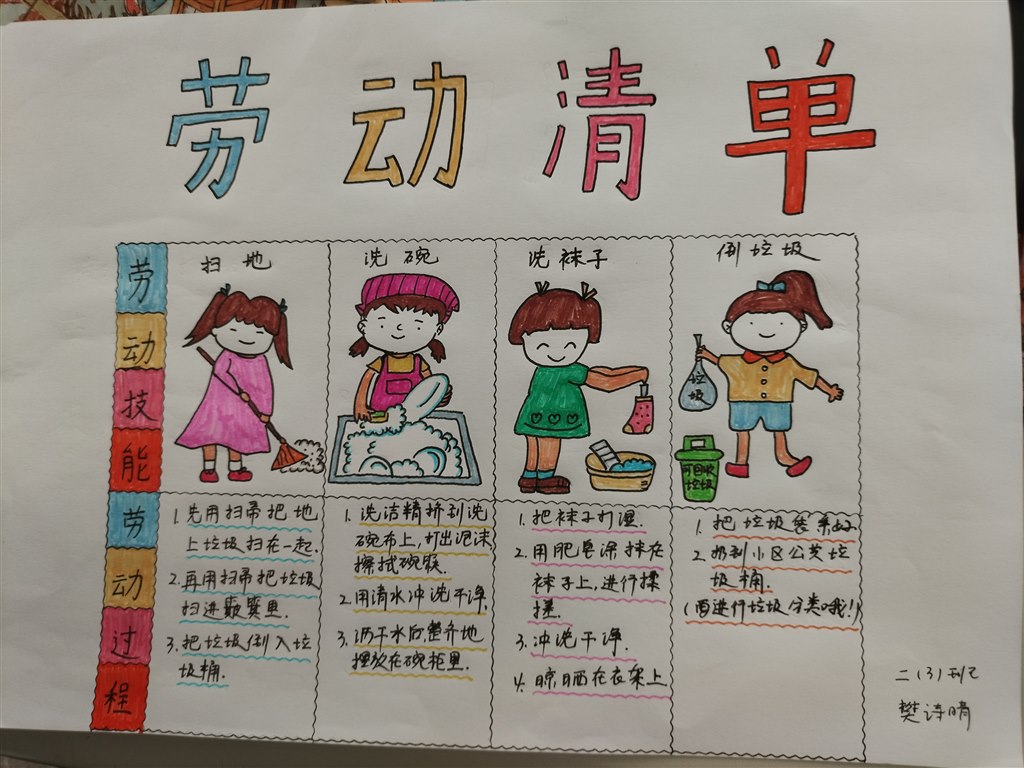 劳动清单
劳动技能
扫地
洗碗
洗袜子
倒垃圾
垃圾
可回收
垃圾
劳动过程
1.先用扫帚把地
上垃圾扫在一起.
2.再用扫帚把垃圾
扫进簸箕里.
3.把垃圾倒入垃
圾桶.
1.洗洁精挤到洗
碗布上,打出泡沫,
擦拭碗筷.
2.用清水冲洗干净,
3.沥干水后,整齐地
摆放在碗柜里.
1.把袜子打湿.
2.用肥皂涂抹在
袜子上,进行揉
搓.
3.冲洗干净.
4.晾晒在衣架上
1.把垃圾袋系好
2.扔到小区公共垃
圾桶.
(要进行垃圾分类哦!)
二(3)班
樊诗晴